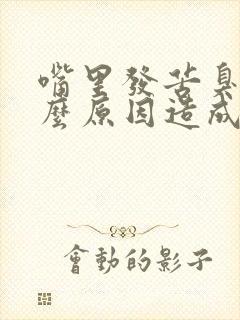 嘴里發苦臭
麼原因造成
會動的影子